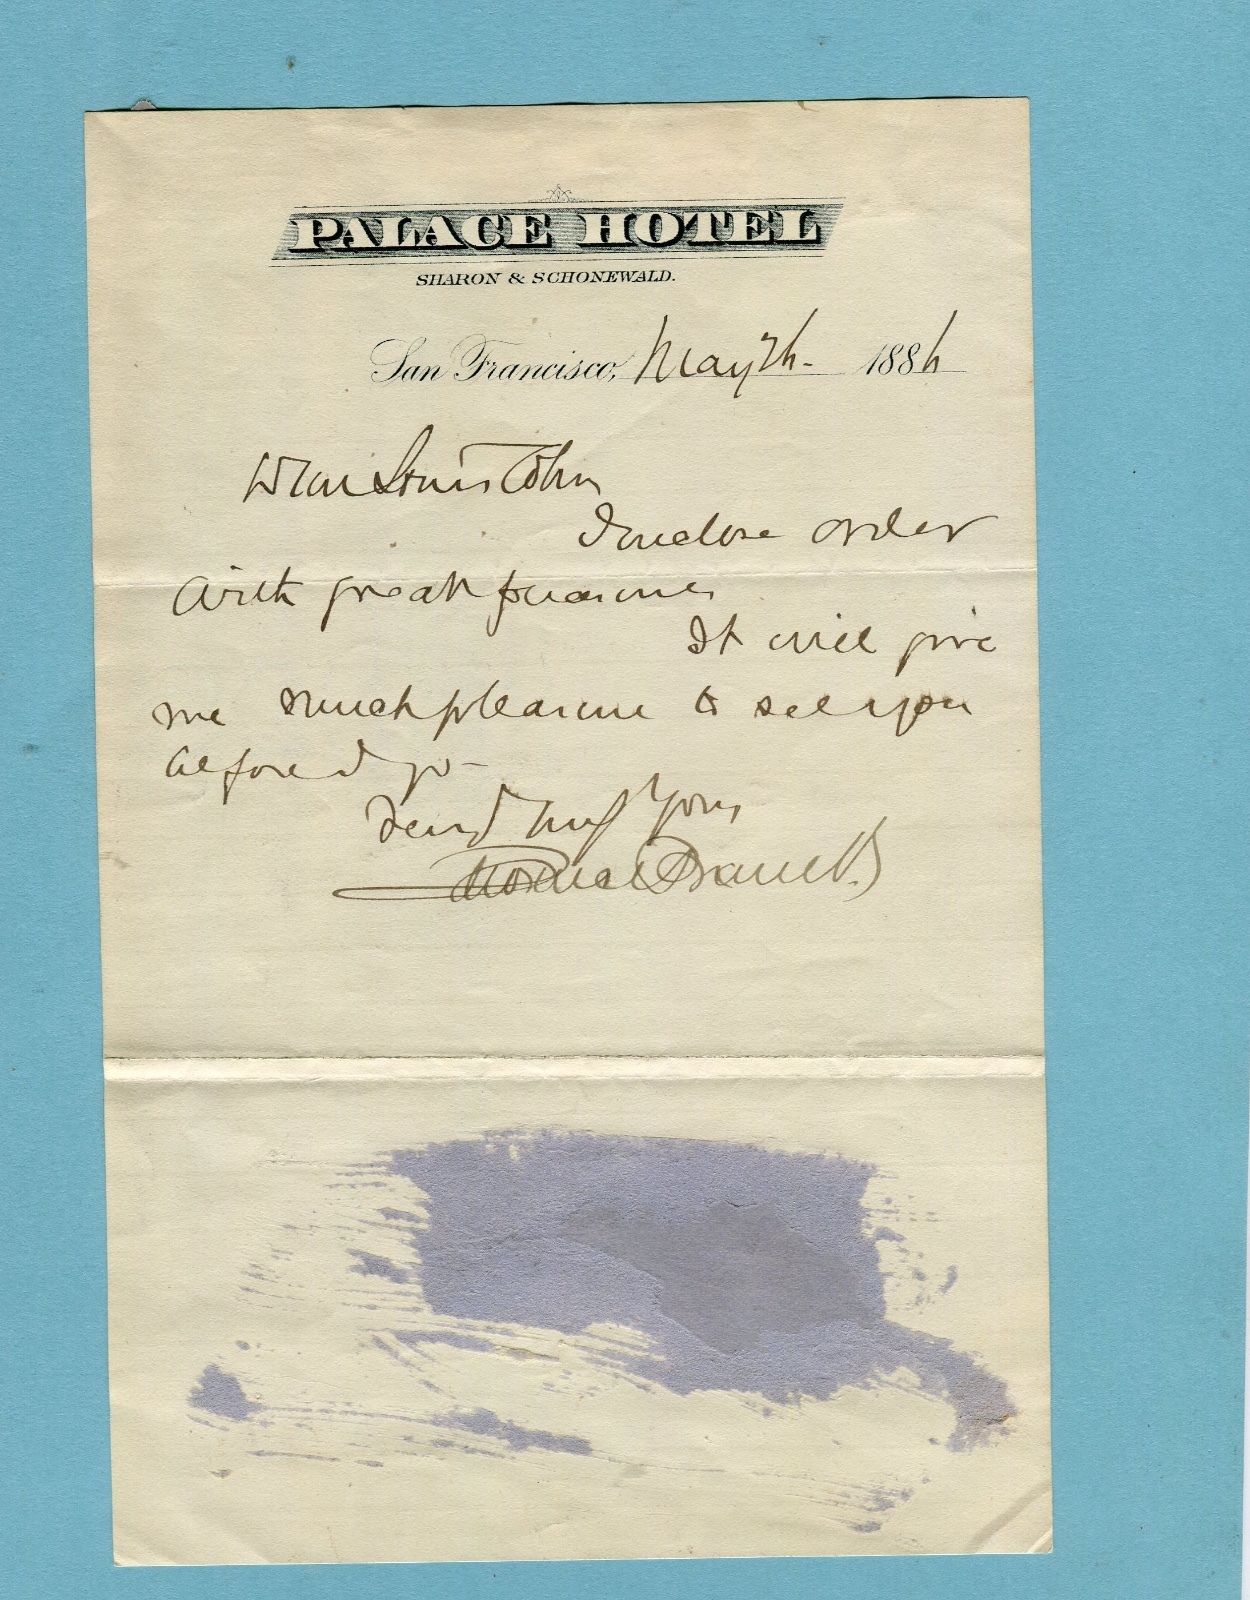 PALACE HOTEL
SHARON & SCHONEWALD.
San Francisco, May 1886
Dear Louis
I enclose order
with great pleasure
It will give
me much pleasure to see you
before I go -
Yours